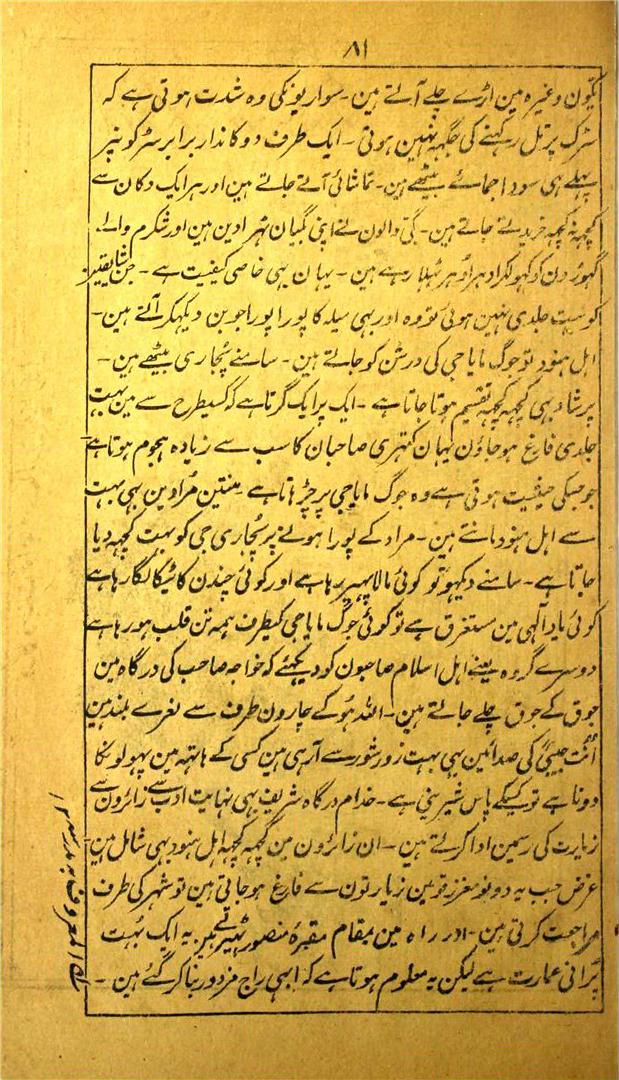 ۸۱
یکّون وغیرہ مین اڑے چلے آتے ہین۔ سواریونکی وہ شدت ہوتی ہے کہ
سڑک پر تل رکہنے کی جگہہ نہین ہوتی۔ ایک طرف دوکاندار برابر سڑکونپر
پہلے ہی سودا جمائے بیٹھے ہین۔ تماشائی آتے جاتے ہین اور ہر ایک دکان سے
کچہہ نہ کچہہ خریدتے جاتے ہین۔ بگی والون نے اپنی بگیان ٹہرا دین ہین اور شکرم والے
گہوڑون کو کہولکر ادہر اُدہر ٹہلا رہے ہین۔ یہان یہی خاصی کیفیت ہے۔ جن شایقین
کو بہت جلدی نہین ہوتی تو وہ اور بہی میلہ کا پورا پورا جوبن دیکہکر آتے ہین۔
اہل ہنود تو جوگ مایا جی کی درشن کو جاتے ہین۔ سامنے پُجاری بیٹھے ہین۔
پرشاد بہی کچہہ کچہہ تقسیم ہوتا جاتا ہے۔ ایک پر ایک گرتا ہے کہ کسیطرح سے مین بہت
جلدی فارغ ہو جاؤن یہان کہتری صاحبان کا سب سے زیادہ ہجوم ہوتا ہے
جو جسکی حیثیت ہوتی ہے وہ جوگ مایا جی پر چڑہاتا ہے منتین مُرادین بہی بہت
سے اہل ہنود مانتے ہین۔ مراد کے پورا ہونے پر پُجاری جی کو بہت کچہہ دیا
جاتا ہے۔ سامنے دیکہو تو کوئی مالا پہیر رہا ہے اور کوئی چندن کا ٹیکا لگا رہا ہے
کوئی یاد الٰہی مین مستغرق ہے تو کوئی جوگ مایا جی کیطرف ہمہ تن قلب ہو رہا ہے
دوسرے گروہ یعنے اہل اسلام صاحبون کو دیکہئے کہ خواجہ صاحب کی درگاہ مین
جوق کے جوق چلے جاتے ہین۔ اللہ ہُو کے چارون طرف سے نعرے بلند ہین
اَنْتَ حَبِیْبِیْ کی صدائین بہی بہت زور شور سے آرہی ہین کسی کے ہاتہہ مین پہولونکا
دونا ہے تو کسیکے پاس شیرینی ہے۔ خدام درگاہ شریف بہی نہایت ادب سے زائرون سے
زیارت کی رسمین ادا کراتے ہین۔ ان زائرون مین کچہہ کچہہ اہل ہنود بہی شامل ہین
غرض جب یہ دونو معزز قومین زیارتون سے فارغ ہو جاتی ہین تو شہر کی طرف
مراجعت کرتی ہین۔ اور راہ مین بمقام مقبرۂ منصور ٹہیرتے ہین یہ ایک بہت
پُرانی عمارت ہے لیکن یہ معلوم ہوتا ہے کہ ابہی راج مزدور بنا کر گئے ہین۔